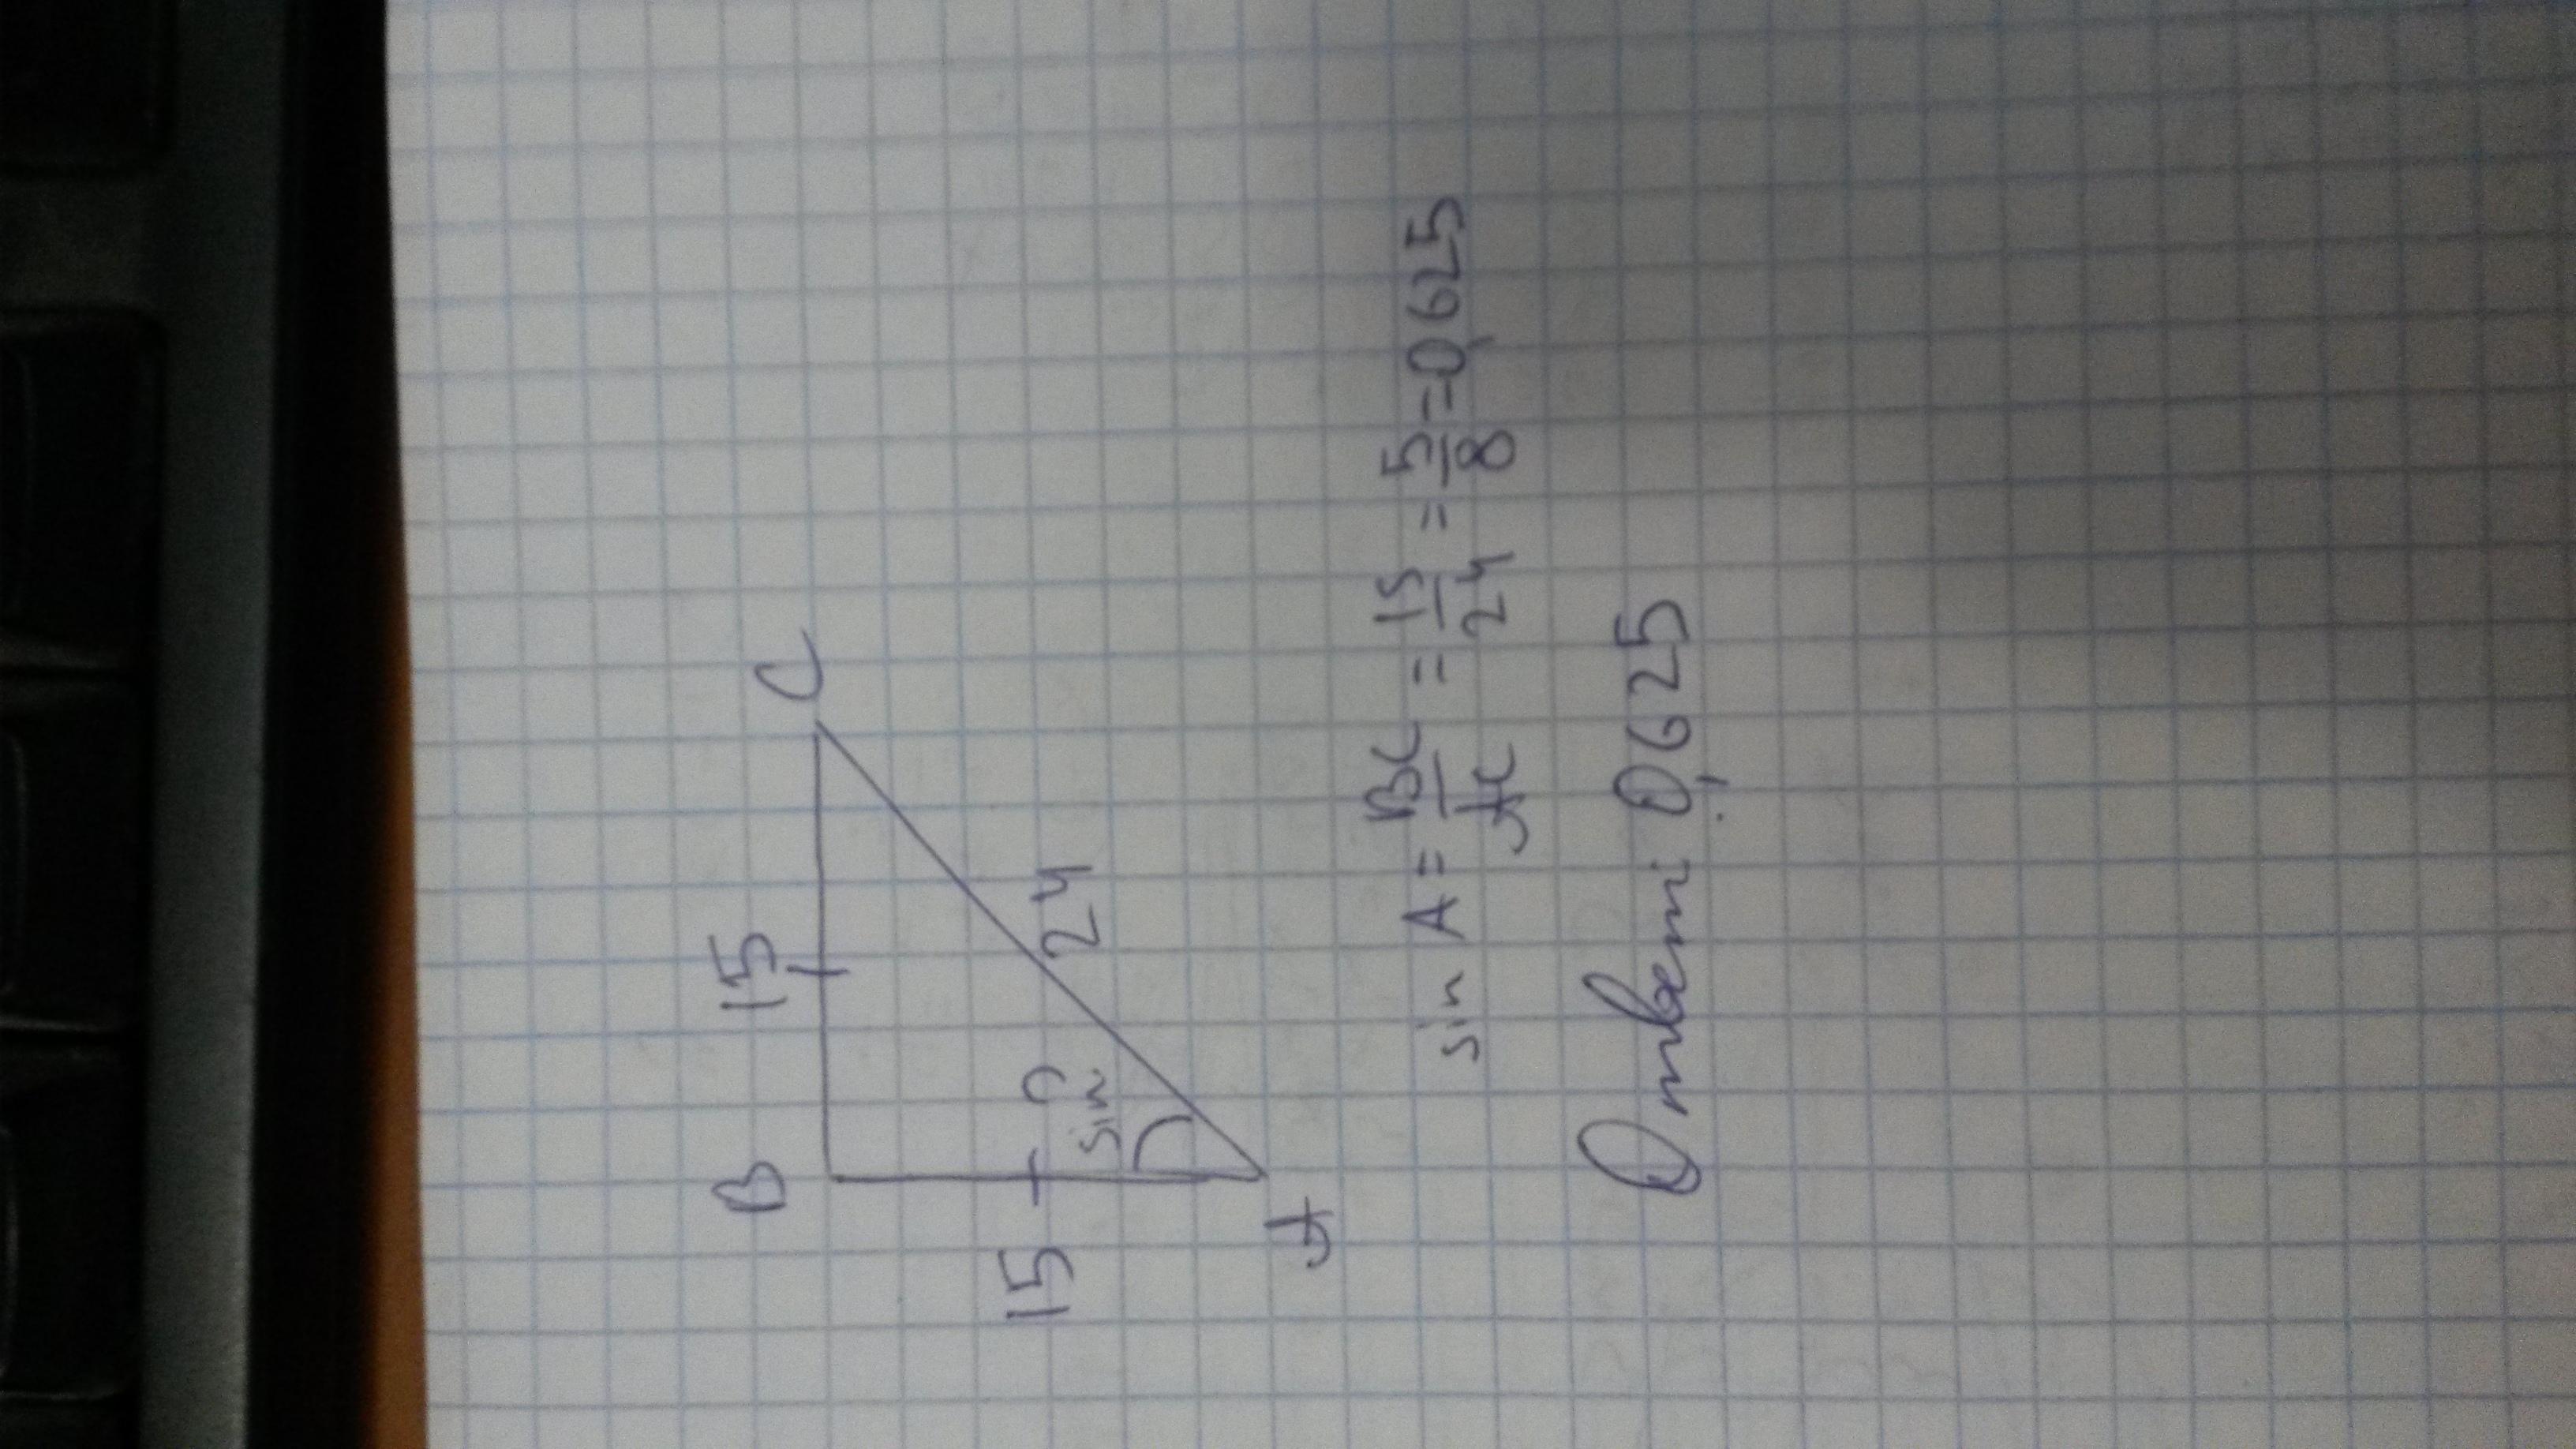 B 15 C
15
sin ?
24
A
sin A = BC/AC = 15/24 = 5/8 = 0,625
Ответ: 0,625